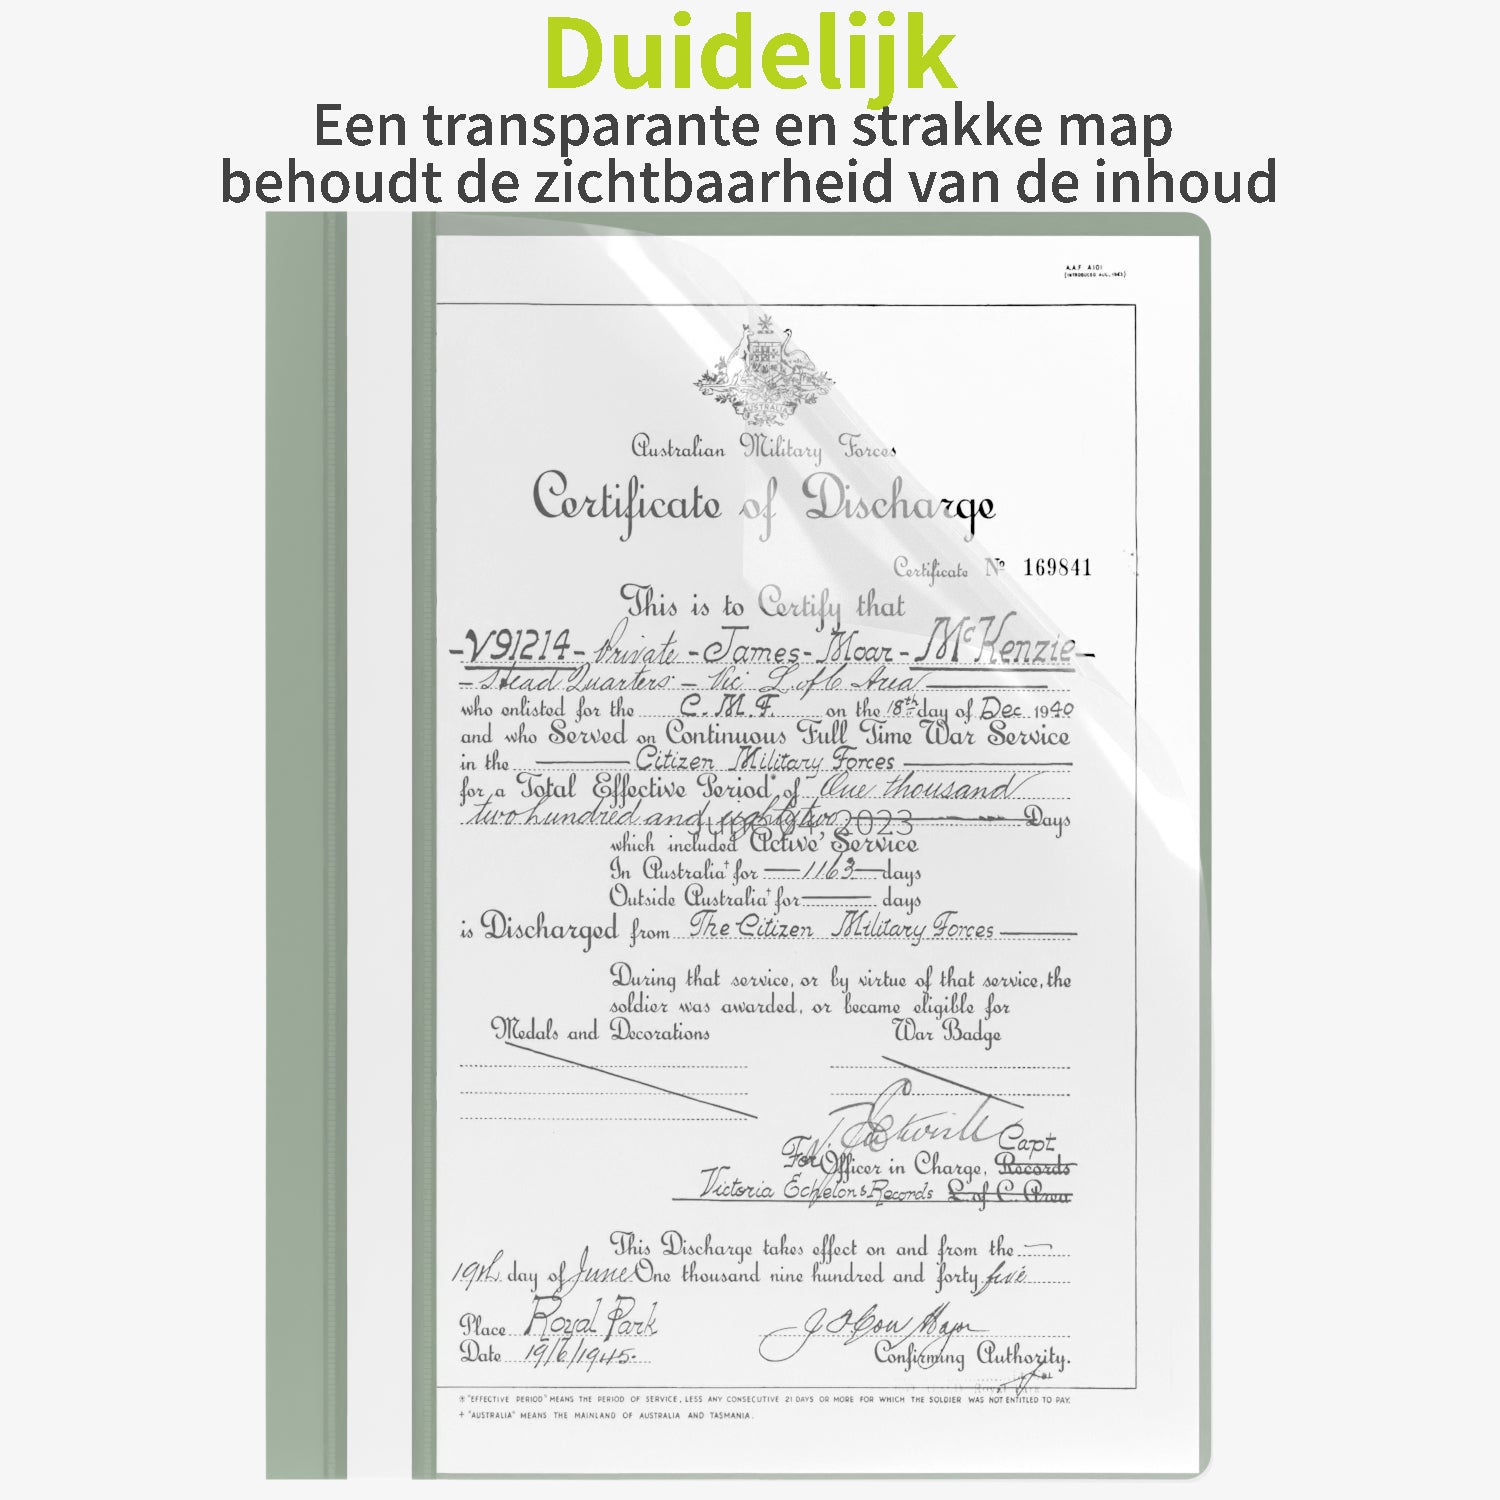 Duidelijk
Een transparante en strakke map
behoudt de zichtbaarheid van de inhoud
A.A.F. A101
(INTRODUCED AUG., 1943)
AUSTRALIA
Australian Military Forces
Certificate of Discharge
Certificate No 169841
This is to Certify that
-V91214- Private -James- Moar- McKenzie-
- Head Quarters - Vic L of C Area
who enlisted for the C.M.F. on the 18th day of Dec 1940
and who Served on Continuous Full Time War Service
in the Citizen Military Forces
for a Total Effective Period* of One thousand
two hundred and eighty two Days
June 04, 2023
which included Active Service
In Australia† for 1163 days
Outside Australia† for days
is Discharged from The Citizen Military Forces
During that service, or by virtue of that service, the
soldier was awarded, or became eligible for
Medals and Decorations War Badge
Capt
For Officer in Charge, Records
Victoria Echelon & Records L. of C. Area
This Discharge takes effect on and from the
19th day of June One thousand nine hundred and forty five
Place Royal Park
Major
Date 19/6/1945.
Confirming Authority.
* "EFFECTIVE PERIOD" MEANS THE PERIOD OF SERVICE, LESS ANY CONSECUTIVE 21 DAYS OR MORE FOR WHICH THE SOLDIER WAS NOT ENTITLED TO PAY.
+ "AUSTRALIA" MEANS THE MAINLAND OF AUSTRALIA AND TASMANIA.